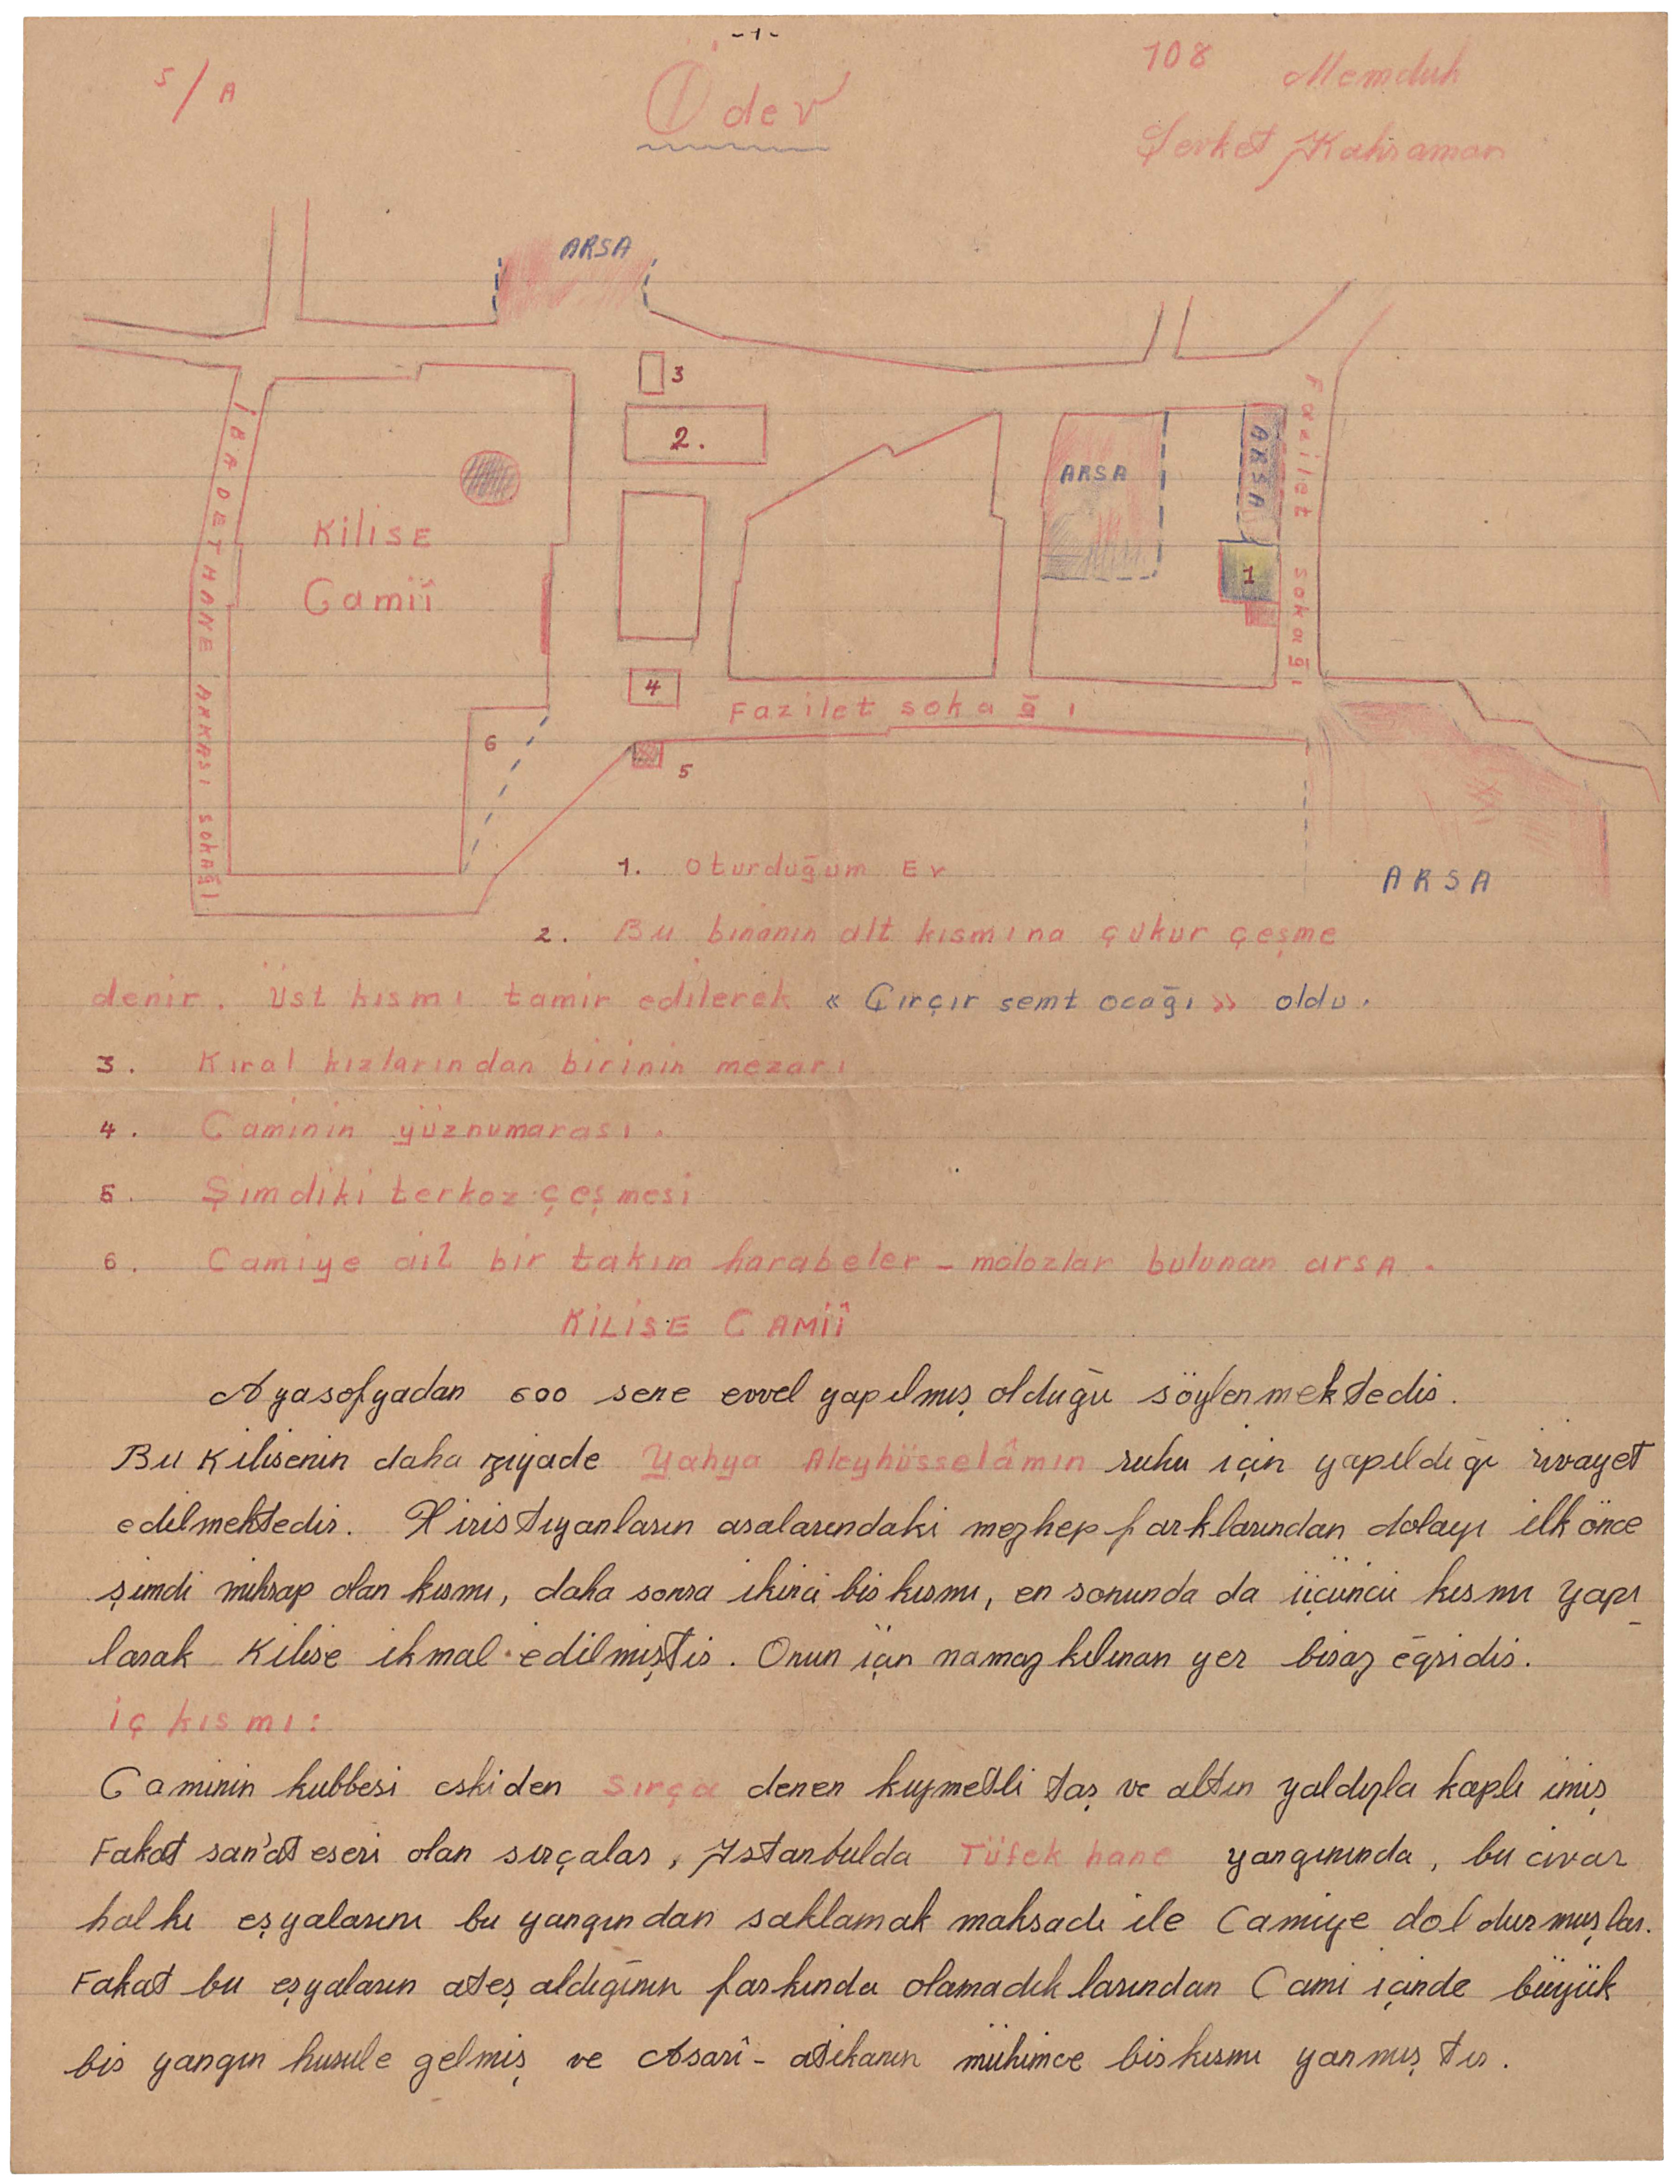 -1-
5/A
Ödev
108 Memduh
Şevket Kahraman
ARSA
3
2.
İBADETHANE ARKASI SOKAĞI
KiLiSE
Camiî
ARSA
ARSA
Fazilet sokağı
1
4
Fazilet sokağı
6
5
ARSA
1. Oturduğum Ev
2. Bu binanın alt kısmına çukur çeşme
denir. Üst kısmı tamir edilerek « Çırçır semt ocağı » oldu.
3. Kıral kızlarından birinin mezarı
4. Caminin yüznumarası.
5. Şimdiki terkoz çeşmesi
6. Camiye ait bir takım harabeler - molozlar bulunan arsA.
KİLİSE CAMİÎ
Ayasofyadan 600 sene evvel yapılmış olduğu söylenmektedir.
Bu Kilisenin daha ziyade Yahya Aleyhüsselâmın ruhu için yapıldığı rivayet
edilmektedir. Hiristıyanların aralarındaki mezhep farklarından dolayı ilk önce
şimdi mihrap olan kısmı, daha sonra ikinci bir kısmı, en sonunda da üçüncü kısmı yapı
larak Kilise ikmal edilmiştir. Onun için namaz kılınan yer biraz eğridir.
iç kısmı:
Caminin kubbesi eskiden Sırça denen kıymetli taş ve altın yaldızla kaplı imiş
Fakat san'at eseri olan sırçalar, Istanbulda Tüfek hane yangınında, bu civar
halkı eşyalarını bu yangından saklamak maksadı ile Camiye doldurmuşlar.
Fakat bu eşyaların ateş aldığının farkında olamadıklarından Cami içinde büyük
bir yangın husule gelmiş ve Asarî - atikanın mühimce bir kısmı yanmıştır.